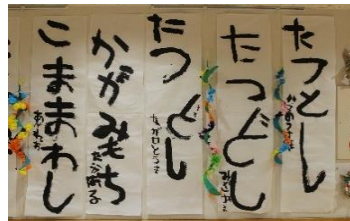 たつとし
たつどし
たつどし
かがみもち
こままわし